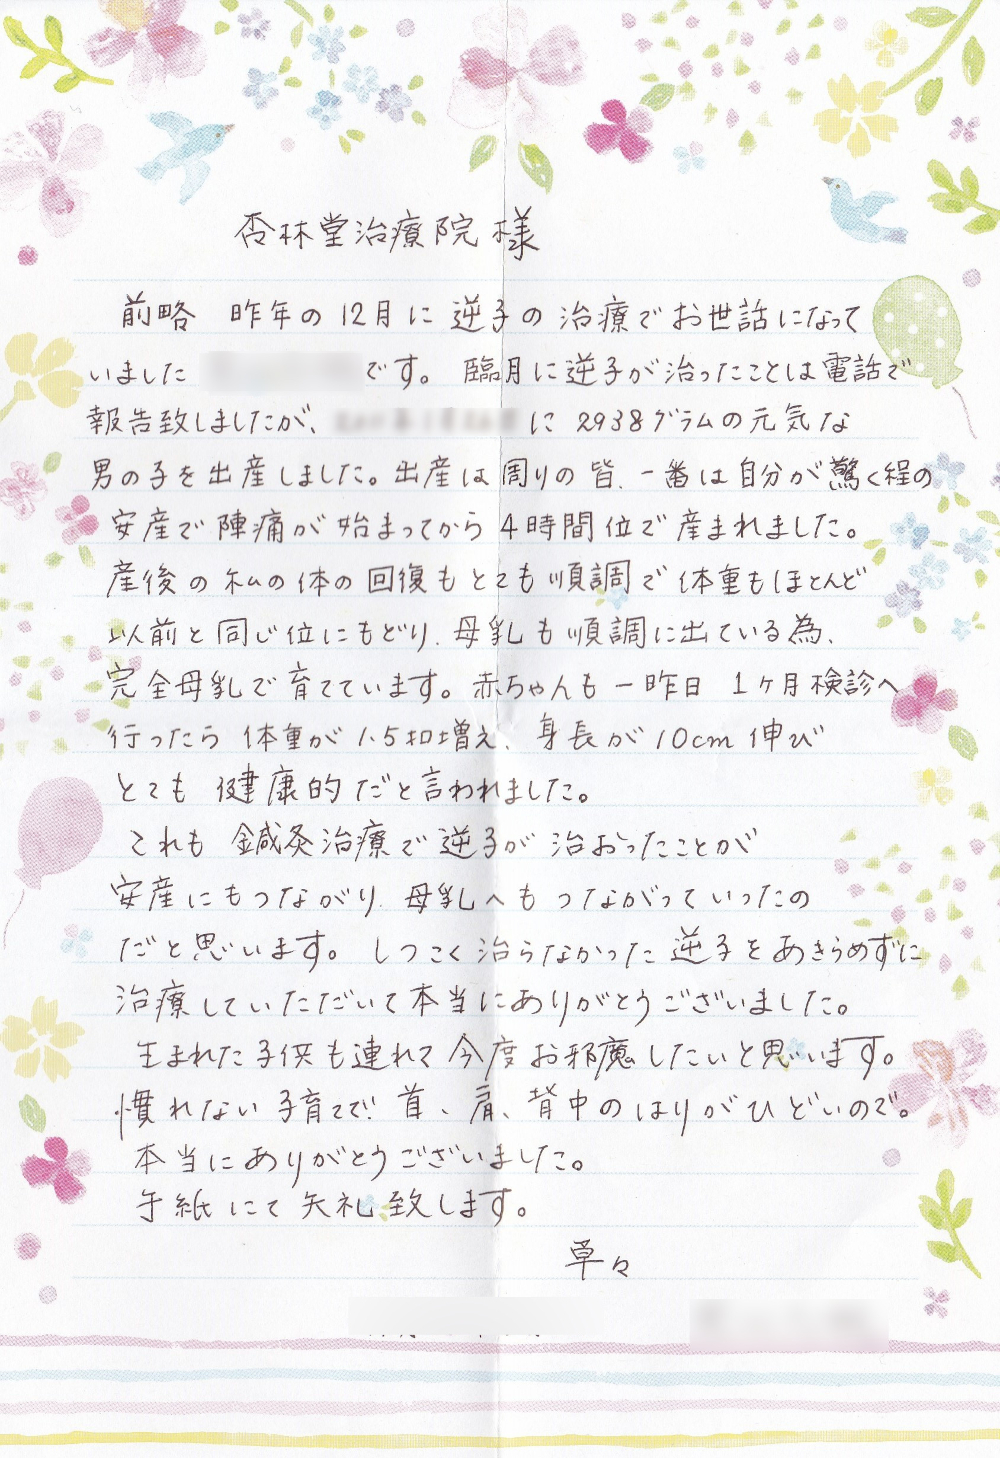 杏林堂治療院 様
前略 昨年の12月に 逆子の 治療でお世話になって
いました です。 臨月に逆子が治ったことは電話で
報告致しましたが、 に 2938グラムの元気な
男の子を出産しました。出産は周りの皆、一番は自分が驚く程の
安産で陣痛が始まってから 4時間位で産まれました。
産後の私の体の回復もとても順調で体重もほとんど
以前と同じ位にもどり、母乳も順調に出ている為、
完全母乳で育てています。赤ちゃんも一昨日 1ヶ月検診へ
行ったら 体重が1.5扣増え、身長が10cm伸び
とても 健康的だと言われました。
これも 鍼灸治療で逆子が治おったことが
安産にもつながり、母乳へもつながっていったの
だと思います。 しつこく治らなかった逆子をあきらめずに
治療していただいて本当にありがとうございました。
生まれた子供も連れて今度お邪魔したいと思います。
慣れない子育てで、首、肩、背中のはりがひどいので。
本当にありがとうございました。
手紙にて失礼致します。
草々